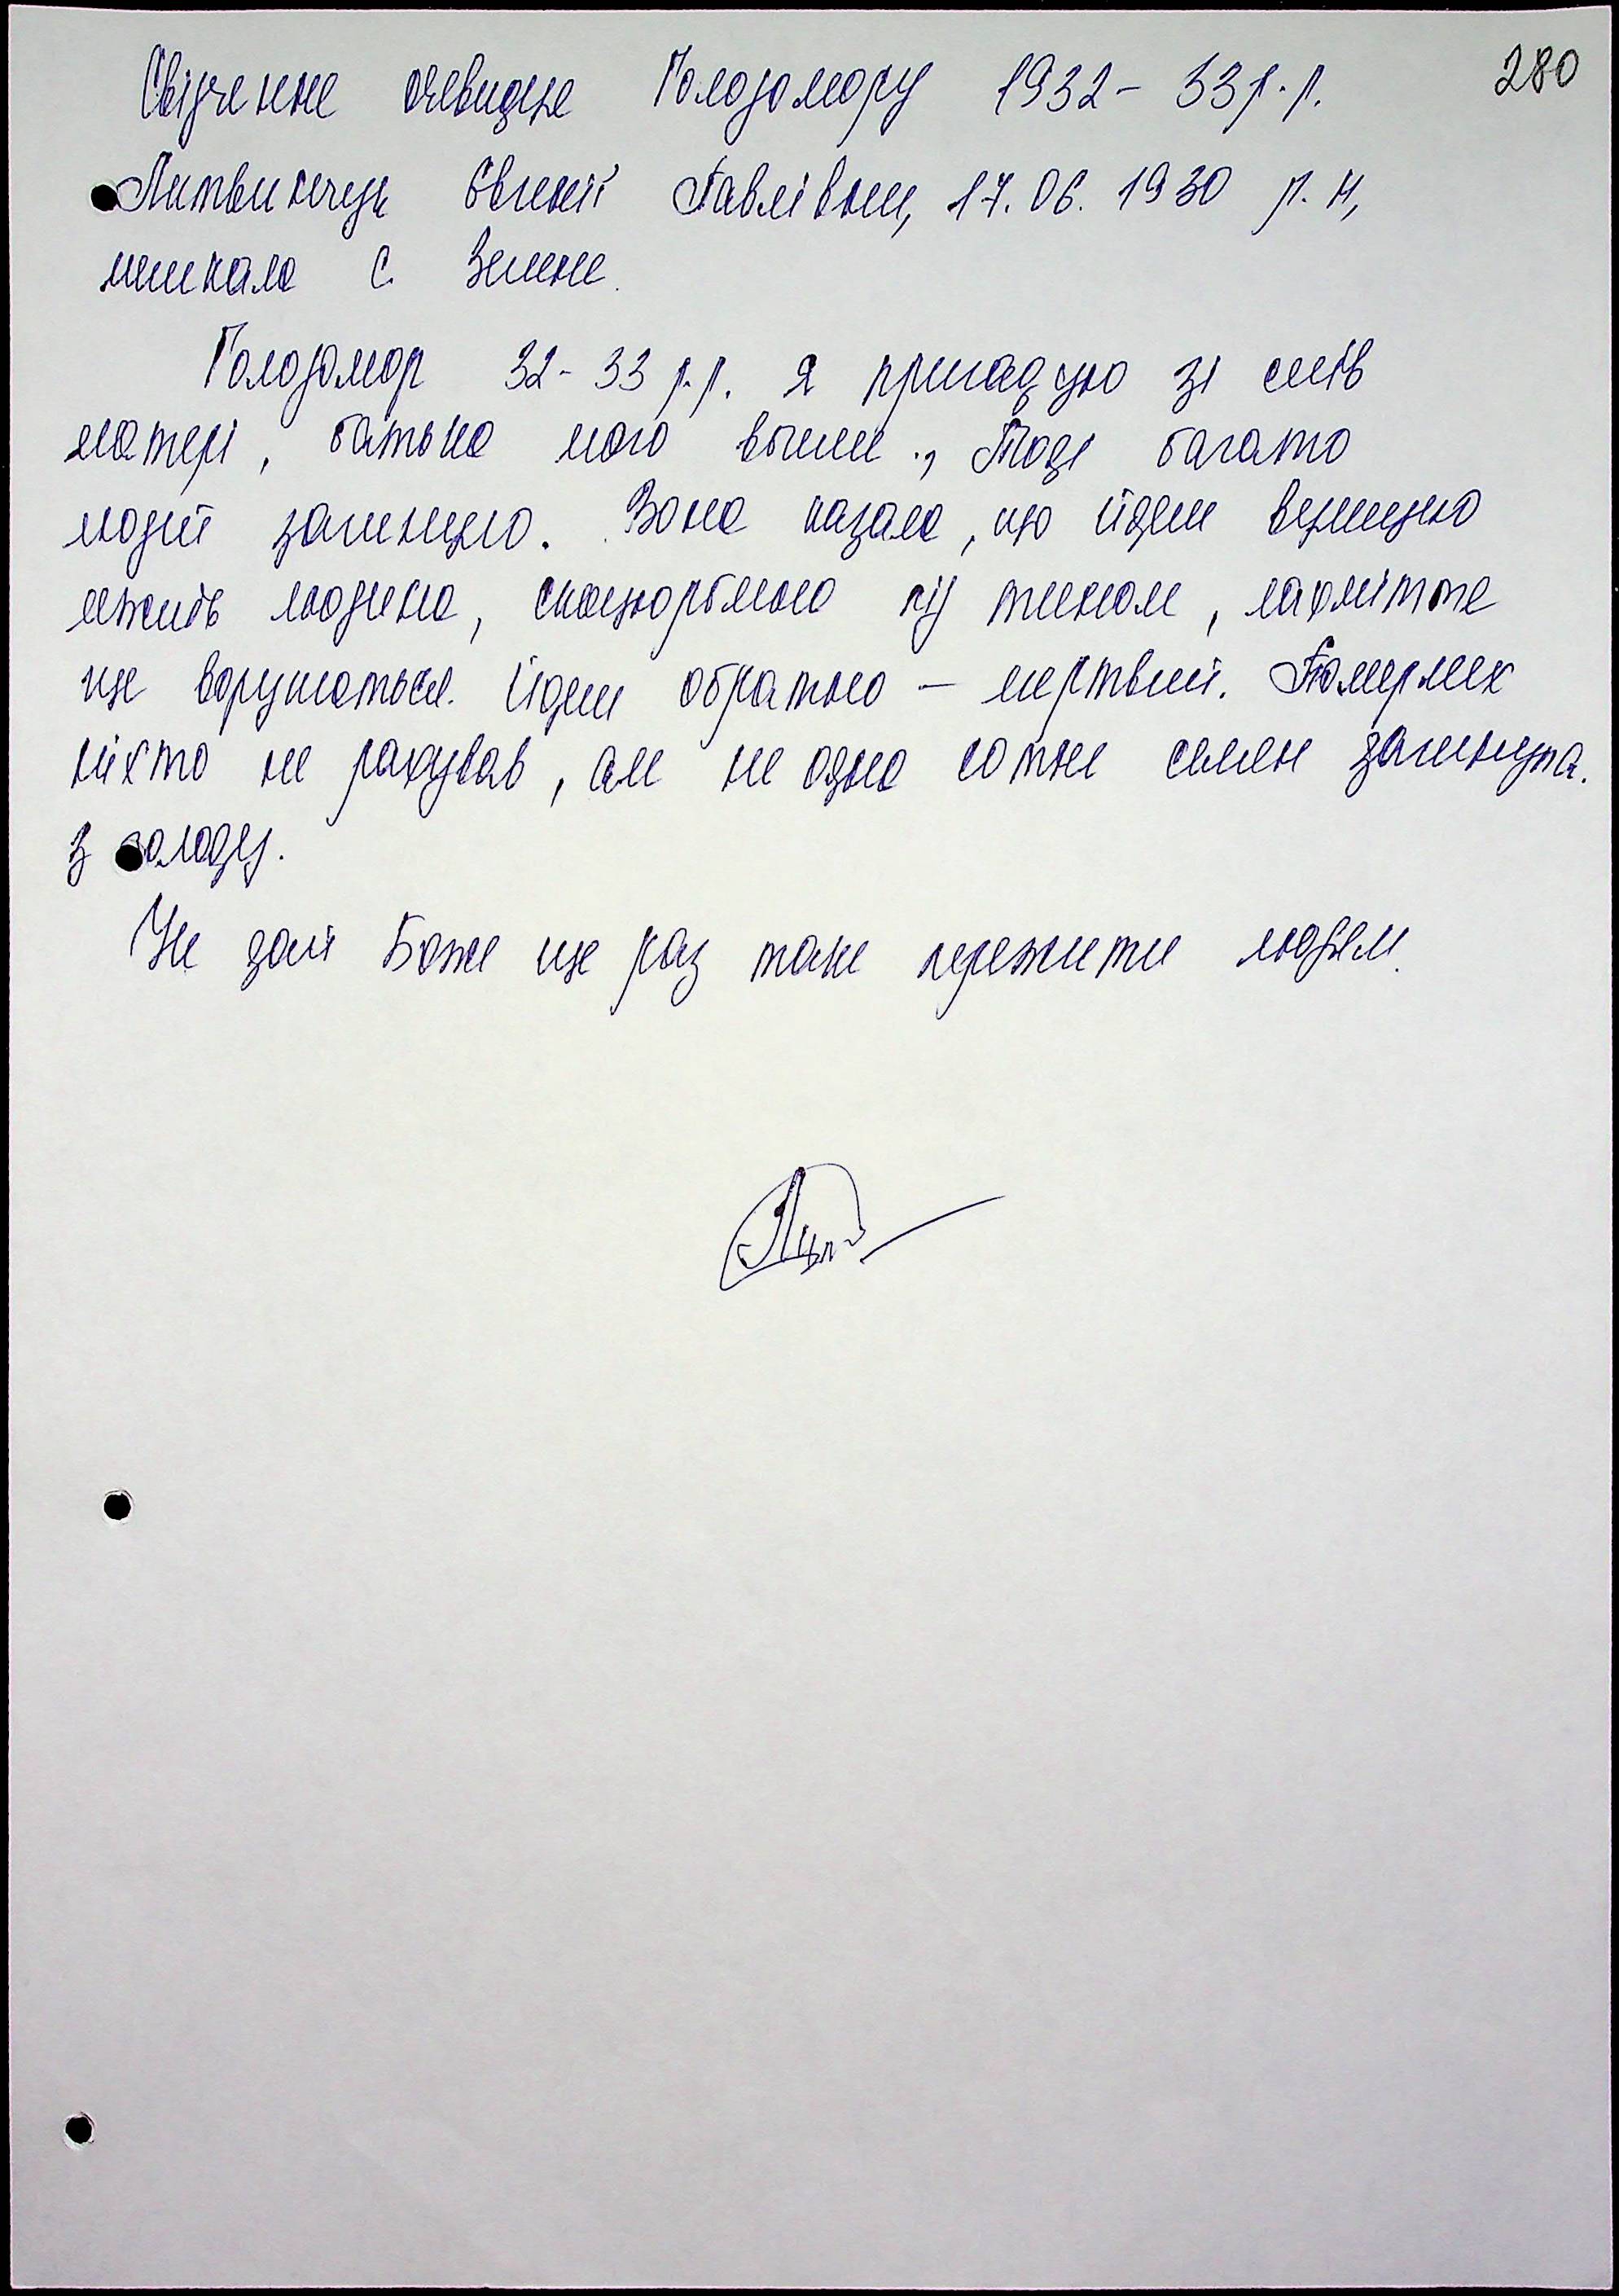 280
Свідчення очевидця Голодомору 1932-33 р.р.
Литвинчук Євгенії Павлівни, 17.06.1930 р.н,
мешкала с. Зелене.
Голодомор 32-33 р.р. я пригадую зі слів
матері, батька мого вбили., Тоді багато
людей загинуло. Вона казала, що йдеш вулицею
лежить людина, скоцюрблена під тином, лахміття
ще ворушаться. Йдеш обратно – мертвий. Померлих
ніхто не рахував, але не одна сотня селян загинула.
з голоду.
Не дай Боже ще раз таке пережити людям.